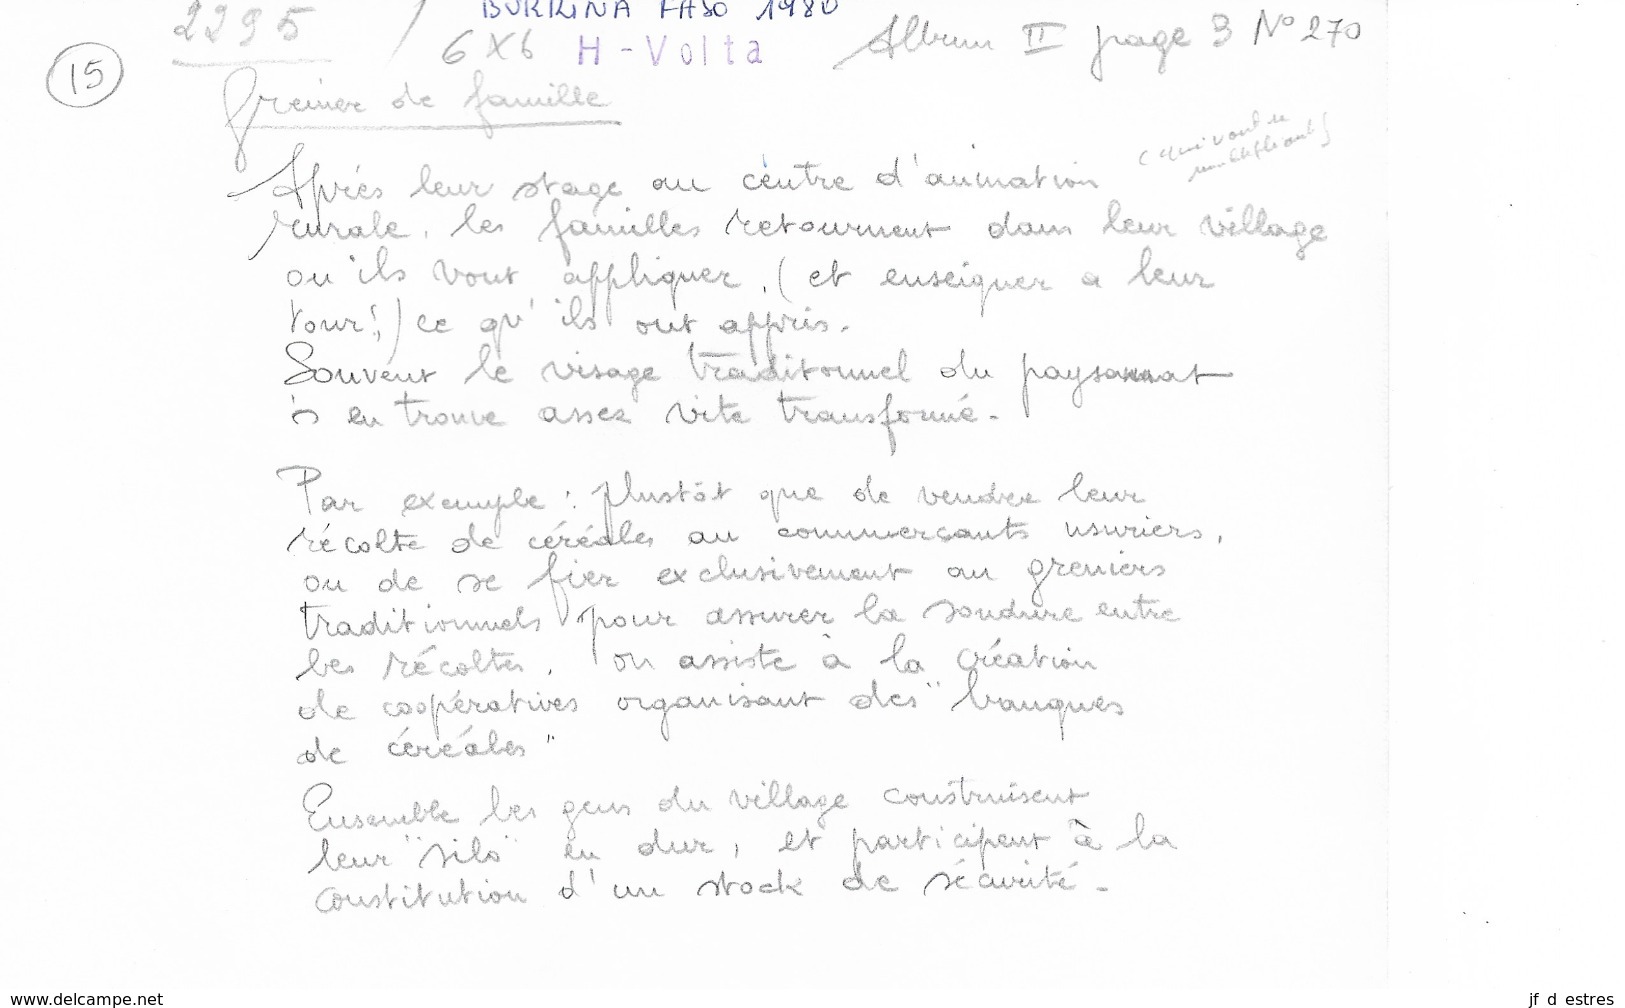 2295 / BURKINA FASO 1980
6X6 H-Volta Album II page 3 N° 270
15
Grenier de famille
(qui vont se
multipliant)
Après leur stage au centre d'animation
rurale, les familles retournent dans leur village
ou ils vont appliquer, (et enseigner a leur
tour!) ce qu'ils ont appris.
Souvent le visage traditonnel du paysannat
s'en trouve assez vite transformé.
Par exemple : plustôt que de vendre leur
récolte de céréales au commerçants usuriers,
ou de se fier exclusivement au greniers
traditionnels pour assurer la soudure entre
les récoltes, on assiste à la création
de coopératives organisant des "banques
de céréales"
Ensemble les gens du village construisent
leur "silo" en dur, et participent à la
constitution d'un stock de sécurité.
www.delcampe.net
jf d estres